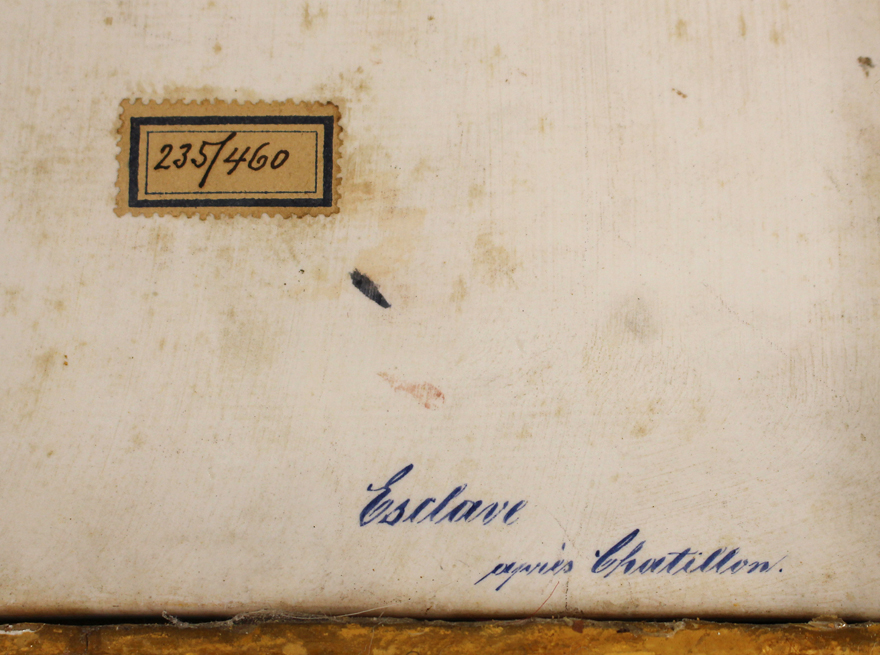 235/460
Esclave
après Chatillon.